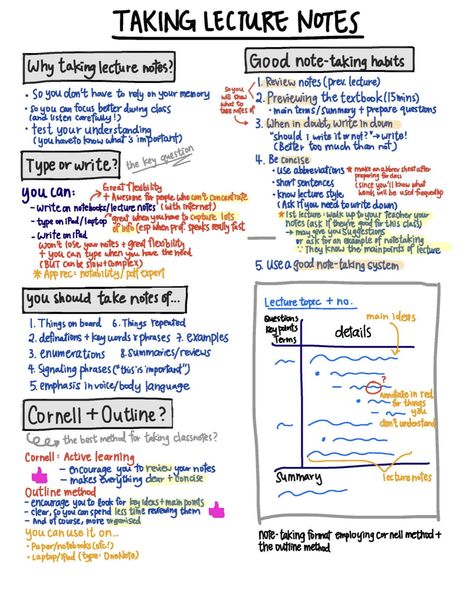 TAKING LECTURE NOTES
Why taking lecture notes?
• So you don't have to rely on your memory
• so you can focus better during class
(and listen carefully!)
• test your understanding
(you have to know what's important)
Type or write?
the key question
you can:
Great flexibility
+ Awesome for people who can't concentrate
- write on notebooks/lecture notes (with internet)
- type on iPad/laptop
great when you have to capture lots
of info (esp when prof. speaks really fast
- write on iPad
won't lose your notes + great flexibility
+ you can type when you have the need
(BUT can be slow + complex)
* App rec: notability/pdf expert
you should take notes of...
1. Things on board
2. definations + key words or phrases
3. enumerations
4. Signaling phrases ("this is important")
5. emphasis in voice/body language
6. Things repeated
7. examples
8. summaries/reviews
Cornell + Outline?
the best method for taking classnotes?
Cornell : Active learning
- encourage you to review your notes
- makes everything clear + concise
Outline method
- encourage you to look for key ideas + main points
- clear, so you can spend less time reviewing them
- And of course, more organised
you can use it on...
• Paper/notebooks (ofc!)
• Laptop/iPad (type: OneNote)
Good note-taking habits
So you will know what to take notes of
1. Review notes (prev. lecture)
2. Previewing the textbook (15mins)
• main terms/summary + prepare questions
3. When in doubt, write in down
"should I write it or not?" → write!
(Better too much than not)
4. Be concise
• use abbreviations
* make an abbrev sheet after
preparing for class
(since you'll know what
words will be used frequently)
• short sentences
• know lecture style
(Ask if you need to write down)
* 1st lecture - walk up to your teacher your
notes (ask if they're good for this class)
→ may give you suggestions
or ask for an example of notetaking
∵ They know the main points of lecture
5. Use a good note-taking system
Lecture topic + no.
main ideas
Questions
Key points
Terms
details
?
Annotate in red
for things
you
don't understand
lecture notes
Summary
note-taking format employing cornell method +
the outline method